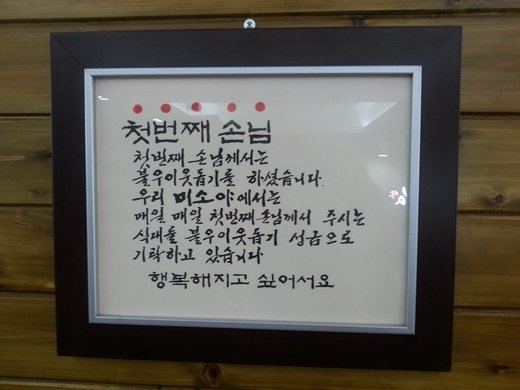 첫번째 손님
첫번째 손님께서는
불우이웃돕기를 하셨습니다.
우리 미소야에서는
매일 매일 첫번째 손님께서 주시는
식대를 불우이웃돕기 성금으로
기탁하고 있습니다
행복해지고 싶어서요